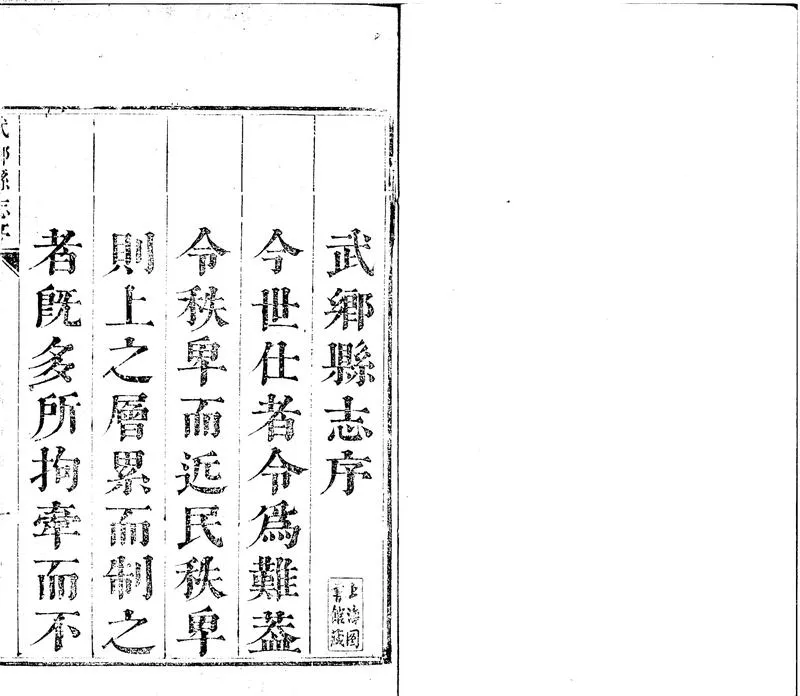 武鄉縣志序
上海圖書館藏
今世仕者令爲難葢
令秩卑而近民秩卑
則上之層累而制之
者旣多所拘牽而不
武鄉縣志序